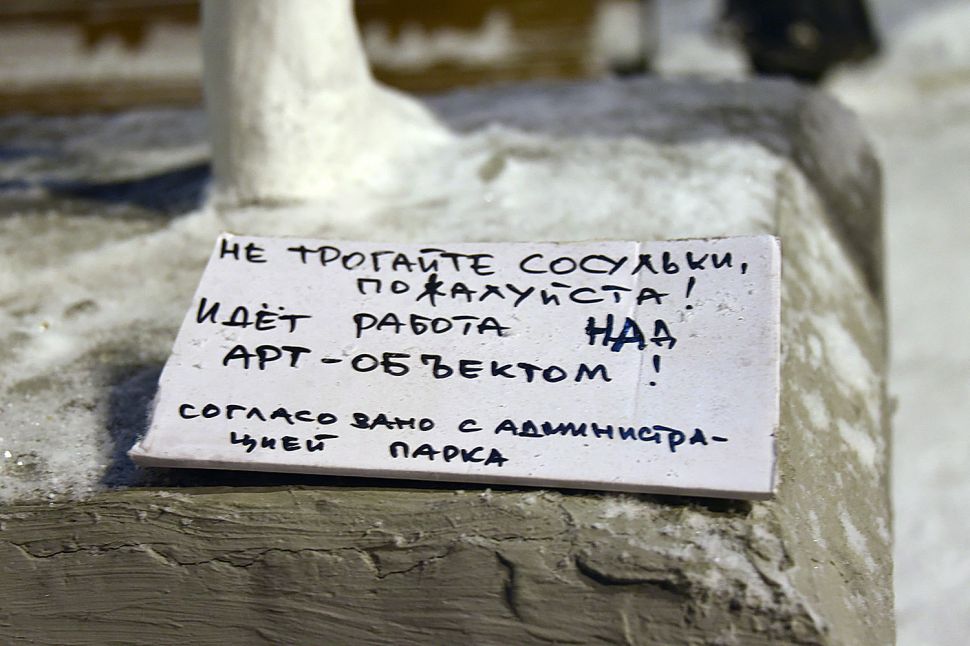 НЕ ТРОГАЙТЕ СОСУЛЬКИ,
ПОЖАЛУЙСТА!
ИДЁТ РАБОТА НАД
АРТ-ОБЪЕКТОМ!
СОГЛАСОВАНО С АДМИНИСТРА-
ЦИЕЙ ПАРКА